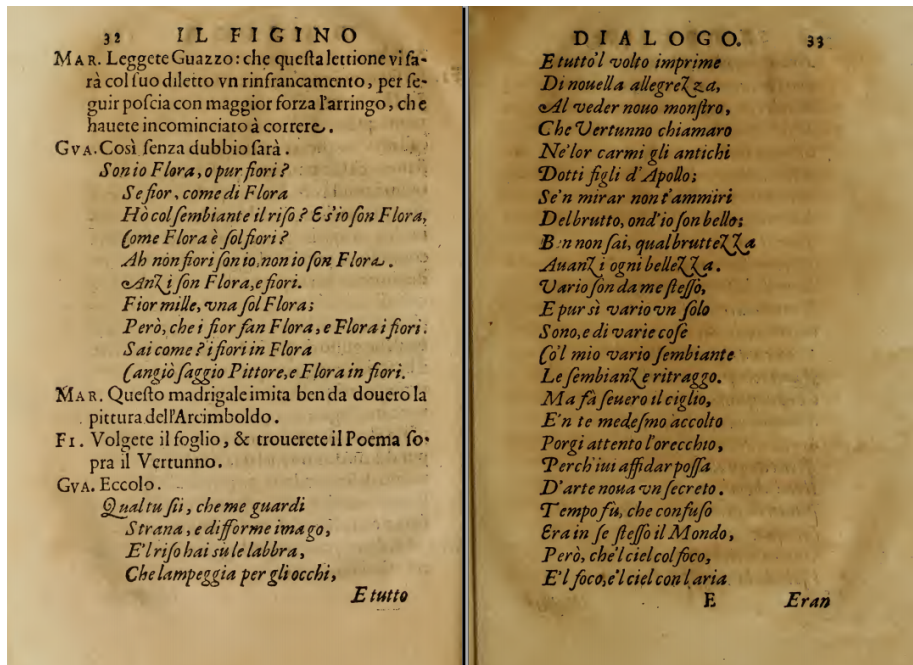 32 IL FIGINO
MAR. Leggete Guazzo: che queſta lettione vi ſa-
rà col ſuo diletto vn rinfrancamento, per ſe-
guir poſcia con maggior forza l'arringo, che
hauete incominciato à correre.
GVA. Così ſenza dubbio ſarà.
Son io Flora, o pur fiori?
Se fior, come di Flora
Hò col ſembiante il riſo? E s'io ſon Flora,
Come Flora è ſol fiori?
Ah nòn fiori ſon io, non io ſon Flora.
Anzi ſon Flora, e fiori.
Fior mille, vna ſol Flora;
Però, che i fior fan Flora, e Flora i fiori.
Sai come? i fiori in Flora
Cangiò ſaggio Pittore, e Flora in fiori.
MAR. Queſto madrigale imita ben da douero la
pittura dell'Arcimboldo.
FI. Volgete il foglio, & trouerete il Poema ſo-
pra il Vertunno.
GVA. Eccolo.
Qual tu ſii, che me guardi
Strana, e difforme imago,
E'l riſo hai sù le labbra,
Che lampeggia per gli occhi,
E tutto
DIALOGO. 33
E tutto'l volto imprime
Di nouella allegrezza,
Al veder nouo monſtro,
Che Vertunno chiamaro
Ne'lor carmi gli antichi
Dotti figli d'Apollo;
Se'n mirar non t'ammiri
Del brutto, ond'io ſon bello;
B n non ſai, qual bruttezza
Auanzi ogni bellezza.
Vario ſon da me ſteſſo,
E pur sì vario vn ſolo
Sono, e di varie coſe
Co'l mio vario ſembiante
Le ſembianze ritraggo.
Ma fà ſeuero il ciglio,
E'n te medeſmo accolto
Porgi attento l'orecchio,
Perch'iui affidar poſſa
D'arte noua vn ſecreto.
Tempo fù, che confuſo
Era in ſe ſteſſo il Mondo,
Però, che'l ciel col foco,
E'l foco, e'l ciel con l aria
E Eran